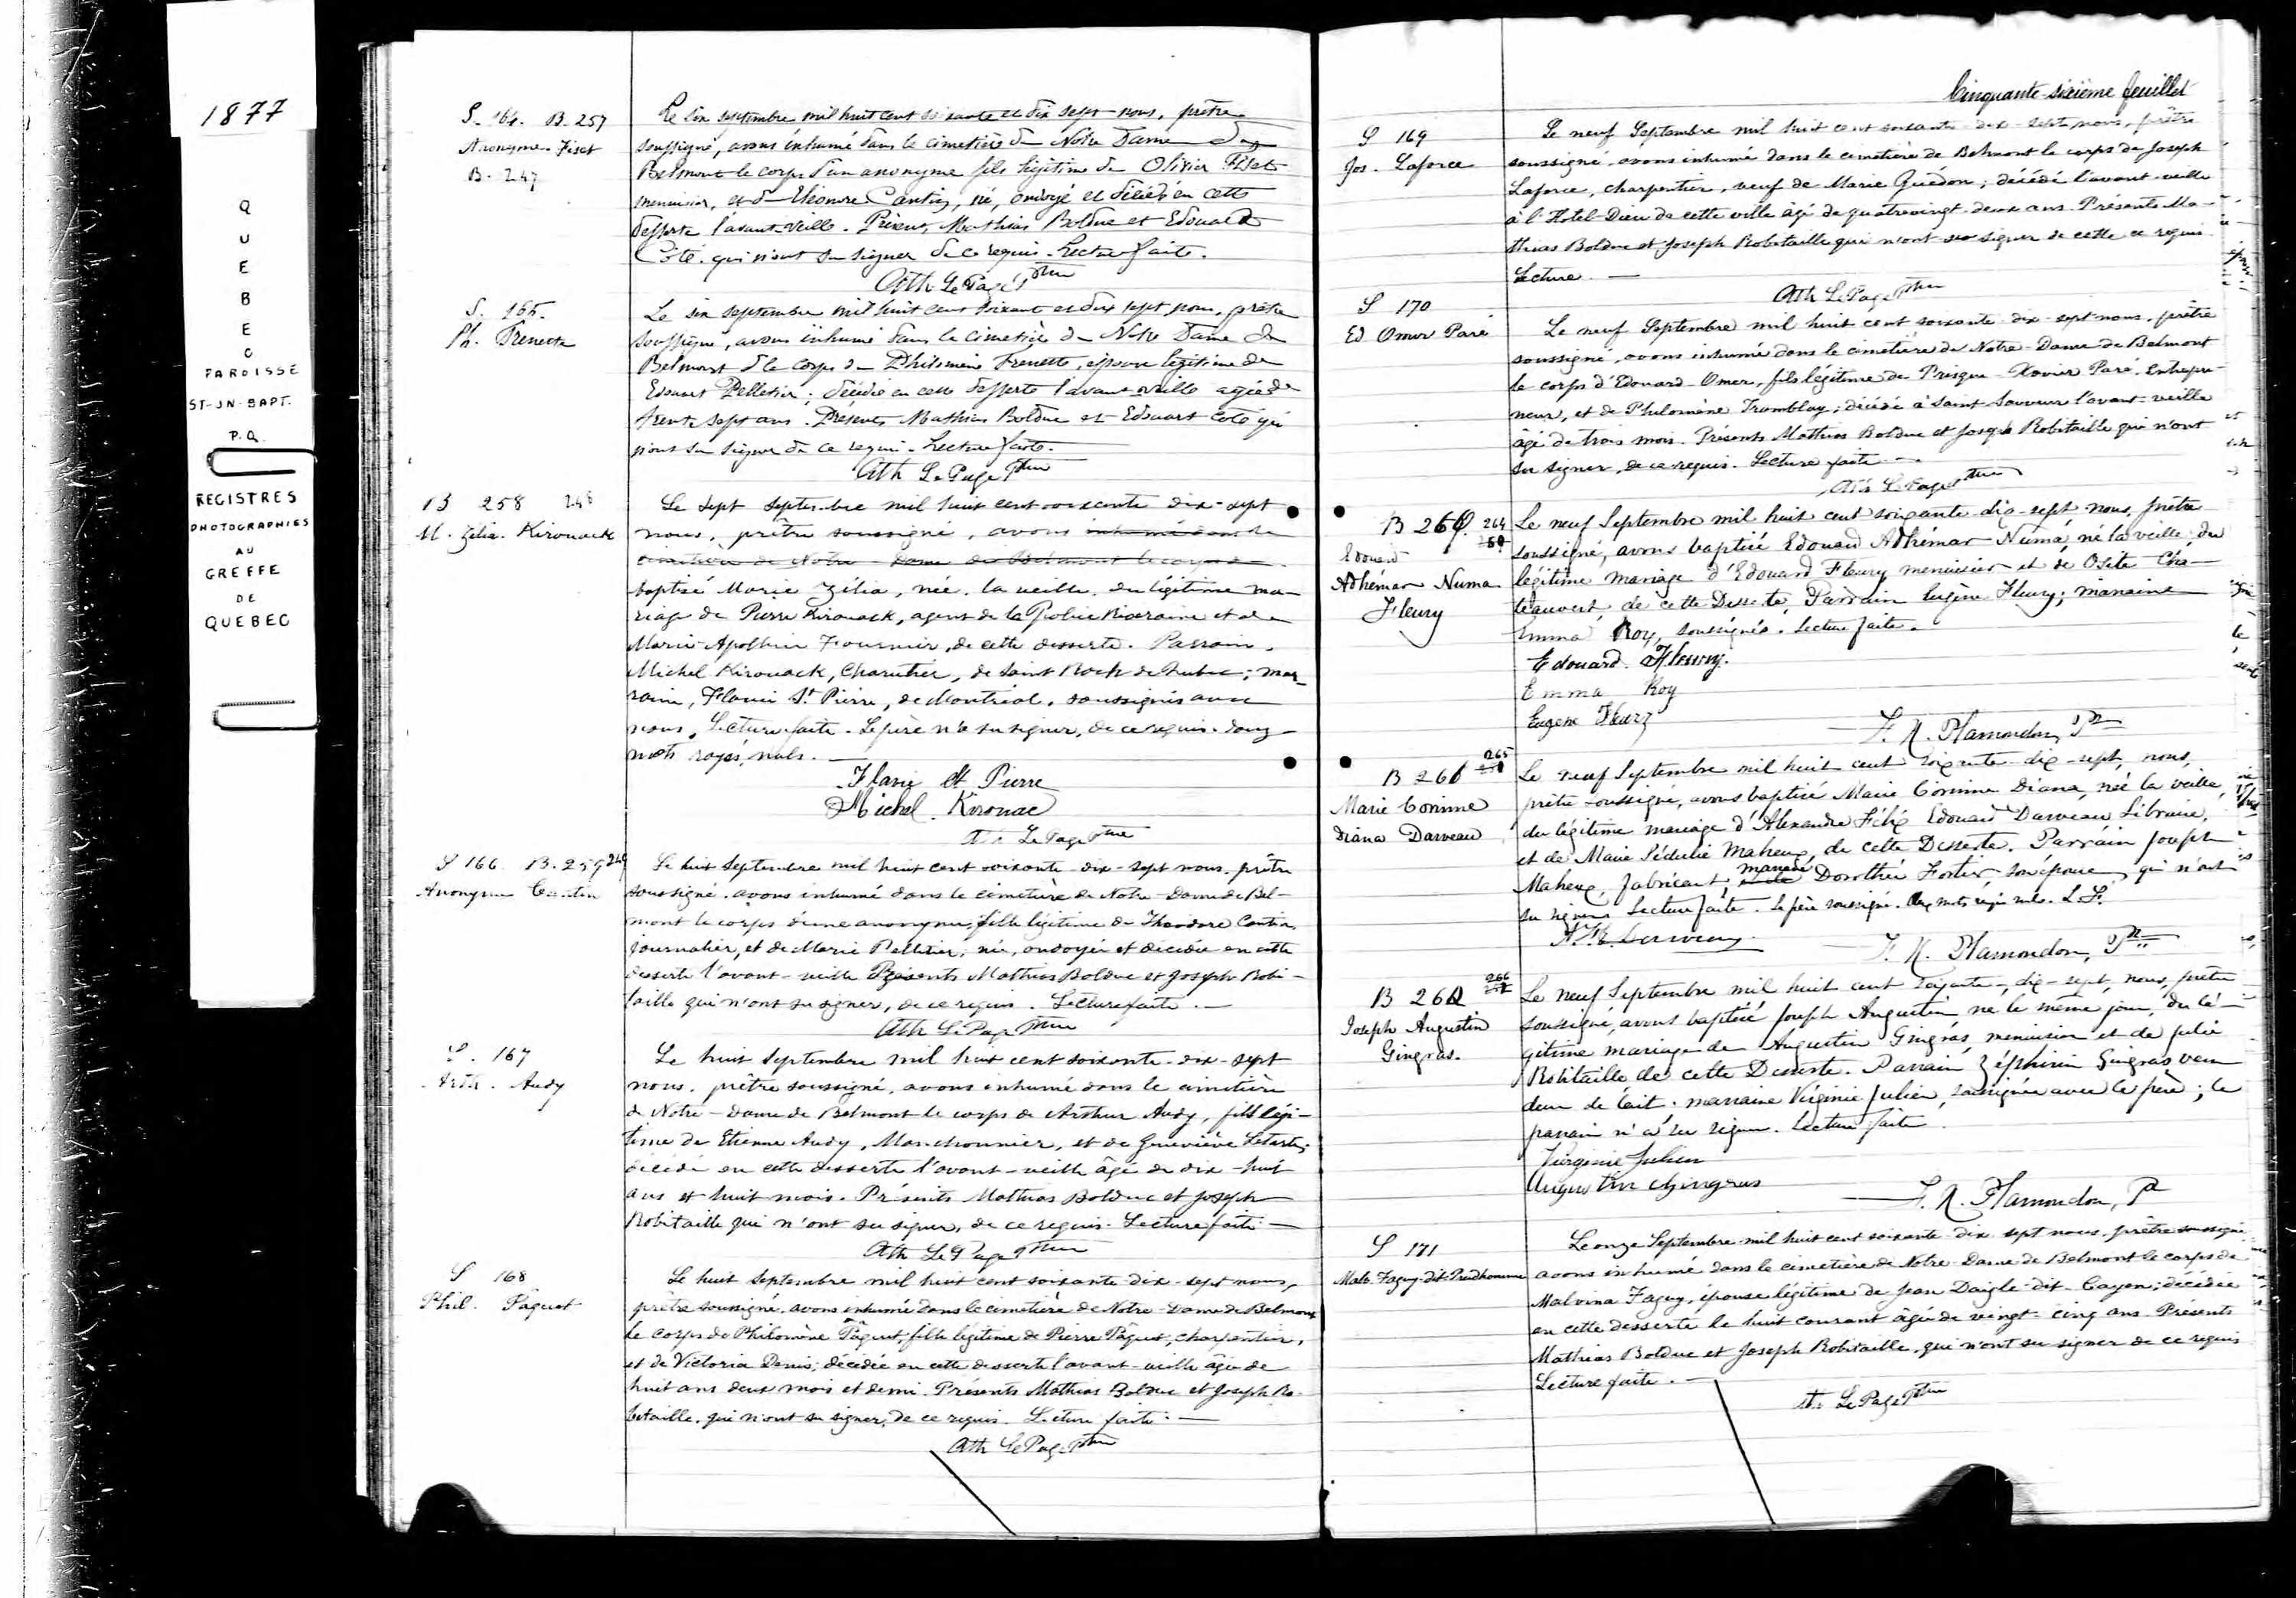 1877
QUEBEC
PAROISSE
ST-JN-BAPT.
P.Q.
REGISTRES
PHOTOGRAPHIES
AU
GREFFE
DE
QUEBEC
S. 164. B. 257
Anonyme Fiset
B. 247
Le six septembre mil huit cent soixante et dix sept nous, prêtre
soussigné, avons inhumé dans le cimetière de Notre Dame de
Belmont le corps d'un anonyme fils légitime de Olivier Fiset
menuisier, et d'Eléonore Cantin, né, ondoyé et décédé en cette
desserte l'avant-veille. Présents Mathias Bolduc et Edouard
Côté qui n'ont su signer de ce requis. Lecture faite.
Ath Le Page Ptre
S. 165.
Ph. Frenette
Le six septembre mil huit cent soixante et dix sept nous, prêtre
soussigné, avons inhumé dans le cimetière de Notre Dame de
Belmont le corps de Philomène Frenette, épouse légitime de
Edouart Pelletier; décédée en cette desserte l'avant-veille agée de
trente sept ans. Présents Mathias Bolduc et Edouart Coté qui
n'ont su signer de ce requis. Lecture faite.
Ath Le Page Ptre
B 258 248
M. Zélia Kirouack
Le sept septembre mil huit cent soixante dix-sept
nous, prêtre soussigné, avons inhumé dans le
cimetière de Notre-Dame de Belmont le corps de
baptisé Marie Zélia, née la veille du légitime ma-
riage de Pierre Kirouack, agent de la Police Riveraine et de
Marie-Apolline Fournier, de cette desserte. Parrain,
Michel Kirouack, Charretier, de Saint Roch de Québec; mar-
raine, Flavie St. Pierre, de Montréal, soussignés avec
nous. Lecture faite. Le père n'a su signer, de ce requis. douze
mots rayés, nuls.
Flavie St Pierre
Michel Kirouac
Ath Le Page Ptre
S 166 B. 259 249
Anonyme Cantin
Le huit Septembre mil huit cent soixante-dix-sept nous, prêtre
soussigné, avons inhumé dans le cimetière de Notre-Dame de Bel-
mont le corps d'une anonyme, fille légitime de Théodore Cantin,
journalier, et de Marie Pelletier; née, ondoyée et décédée en cette
desserte l'avant-veille Présents Mathias Bolduc et Joseph Robi-
taille qui n'ont su signer, de ce requis. Lecture faite.
Ath Le Page Ptre
S. 167
Arth. Audy
Le huit Septembre mil huit cent soixante-dix-sept
nous, prêtre soussigné, avons inhumé dans le cimetière
de Notre-Dame de Belmont le corps de Arthur Audy, fils légi-
time de Etienne Audy, Manchonnier, et de Geneviève Letarte;
décédé en cette desserte l'avant-veille âgé de dix-huit
ans et huit mois. Présents Mathias Bolduc et Joseph
Robitaille qui n'ont su signer, de ce requis. Lecture faite
Ath Le Page Ptre
S 168
Phil. Pâquet
Le huit Septembre mil huit cent soixante dix-sept nous,
prêtre soussigné, avons inhumé dans le cimetière de Notre-Dame de Belmont
le corps de Philomène Pâquet, fille légitime de Pierre Pâquet, charpentier,
et de Victoria Denis; décédée en cette desserte l'avant-veille âgée de
huit ans deux mois et demi. Présents Mathias Bolduc et Joseph Ro-
bitaille, qui n'ont su signer, de ce requis. Lecture faite.
Ath Le Page Ptre
Cinquante-sixième feuillet
S 169
Jos. Laforce
Le neuf Septembre mil huit cent soixante-dix-sept nous, prêtre
soussigné, avons inhumé dans le cimetière de Belmont le corps de Joseph
Laforce, charpentier, veuf de Marie Guédon; décédé l'avant-veille
à l'Hotel-Dieu de cette ville âgé de quatrevingt-deux ans. Présents Ma-
thias Bolduc et Joseph Robitaille qui n'ont su signer de cette ce requis
Lecture.
Ath Le Page Ptre
S 170
Ed Omer Paré
Le neuf Septembre mil huit cent soixante-dix-sept nous, prêtre
soussigné, avons inhumé dans le cimetière de Notre-Dame de Belmont
le corps d'Edouard-Omer, fils légitime de Prisque-Xavier Paré, Entrepre-
neur, et de Philomène Tremblay; décédé à Saint Sauveur l'avant-veille
âgé de trois mois. Présents Mathias Bolduc et Joseph Robitaille qui n'ont
su signer, de ce requis. Lecture faite
Ath Le Page Ptre
B 260. 264
Edouard
Adhémar Numa
Fleury
Le neuf Septembre mil huit cent soixante-dix-sept nous, prêtre
soussigné, avons baptisé Edouard Adhémar Numa né la veille, du
légitime mariage d'Edouard Fleury menuisier et de Osite Cha-
teauvert, de cette Desserte, Parrain Eugène Fleury; marraine
Emma Roy, soussignés. Lecture faite.
Edouard Fleury.
Emma Roy
Eugene Fleury
F. X. Plamondon, Ptre
B 261 265
Marie Corinne
Diana Darveau
Le neuf Septembre mil huit cent soixante-dix-sept, nous,
prêtre soussigné, avons baptisé Marie Corinne Diana, née la veille,
du légitime mariage d'Alexandre Félix Edouard Darveau Libraire,
et de Marie Sédulie Maheux, de cette Desserte. Parrain Joseph
Maheux, fabricant; marraine Dorothée Fortier, son épouse, qui n'ont
su signer. Lecture faite. Le père soussigné. Deux mots rayés nuls. L. F.
A. F. E. Darveau
F. X. Plamondon, Ptre
B 262 266
Joseph Augustin
Gingras.
Le neuf Septembre mil huit cent soixante-dix-sept, nous, prêtre
soussigné, avons baptisé Joseph Augustin né le même jour, du lé-
gitime mariage de Augustin Gingras, menuisier et de Julie
Robitaille de cette Desserte. Parrain Zéphirin Gingras ven
deur de lait. marraine Virginie Julien, soussignée avec le père; le
parrain n'a su signer. Lecture faite.
Virginie Julien
Augustin Gingras
F. X. Plamondon, Ptre
S 171
Malv. Faguy-dit-Prudhomme
Le onze Septembre mil huit cent soixante-dix-sept nous, prêtre soussigné
avons inhumé dans le cimetière de Notre-Dame de Belmont le corps de
Malvina Faguy, épouse légitime de Jean Daigle-dit-Cayen; décédée
en cette desserte le huit courant âgée de vingt-cinq ans. Présents
Mathias Bolduc et Joseph Robitaille, qui n'ont su signer de ce requis
Lecture faite.
Ath Le Page Ptre